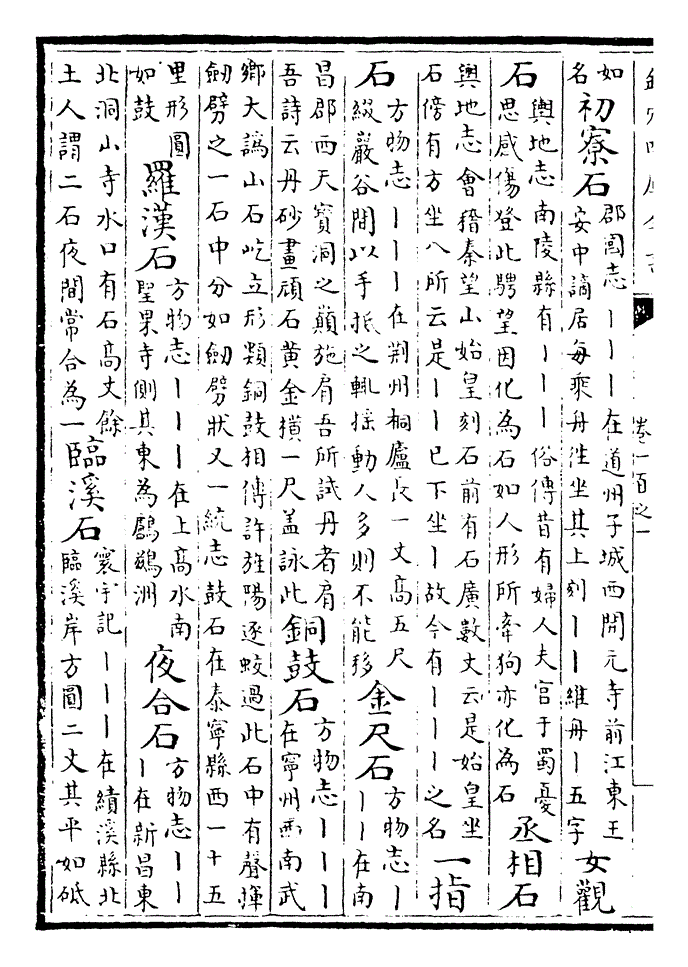 卷一百之一
如名初寮石郡國志丨丨丨在道州子城西開元寺前江東王安中謫居每乘舟往坐其上刻丨丨維舟丨五字女觀
石輿地志南陵縣有丨丨丨俗傳昔有婦人夫官于蜀憂思感傷登此騁望因化為石如人形所牽狗亦化為石丞相石
輿地志會稽秦望山始皇刻石前有石廣數丈云是始皇坐石傍有方坐八所云是丨丨已下坐丨故今有丨丨丨之名一指
石方物志丨丨丨在荆州桐廬長一丈高五尺綴巖谷間以手抵之輒揺動人多則不能移金尺石方物志丨丨丨在南
昌郡西天寳洞之巔施肩吾所試丹者肩吾詩云丹砂畫頑石黄金横一尺盖詠此銅鼓石方物志丨丨丨在寧州西南武
鄉大譌山石屹立形類銅鼓相傳許旌陽逐蛟過此石中有聲揮劒劈之一石中分如劒劈狀又一統志鼓石在泰寧縣西一十五
里形圓如鼓羅漢石方物志丨丨丨在上高水南聖果寺側其東為鸕鷀洲夜合石方物志丨丨丨在新昌東
北洞山寺水口有石高丈餘土人謂二石夜間常合為一臨溪石寰宇記丨丨丨在績溪縣北臨溪岸方圓二丈其平如砥